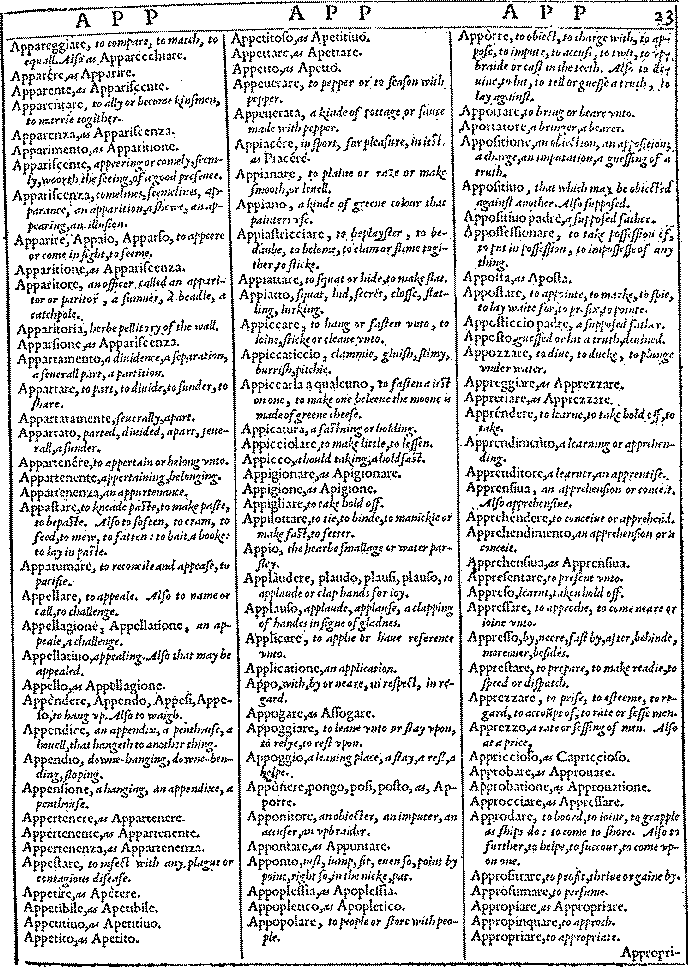 A P P
A P P
A P P
23
Appareggiare, to compare, to match, to
equall. Also as Apparecchiare.
Apparére, as Apparire.
Apparente, as Appariscente.
Apparentare, to ally or become kinsmen,
to marrie togither.
Apparenza, as Appariscenza.
Apparimento, as Apparitione.
Appariscente, appeering or comely, seem-
ly, worth the seeing, of a good presence.
Appariscenza, comelines, seemelines, ap-
parance, an apparition, a shewe, an ap-
pearing, an illusion.
Apparire, Appaio, Apparso, to appeere
or come in sight, to seeme.
Apparitione, as Appariscenza.
Apparitore, an officer called an appari-
tor or paritor, a sumner, a beadle, a
catchpole.
Apparitoria, herbe pellitory of the wall.
Apparsione, as Appariscenza.
Appartamento, a dividence, a separation,
a severall part, a partition.
Appartare, to part, to divide, to sunder, to
share.
Appartatamente, severally, apart.
Appartato, parted, divided, apart, seve-
rall, asunder.
Appartenére, to appertain or belong vnto.
Appartenente, appertaining, belonging.
Appartenenza, an appurtenance.
Appastare, to kneade paste, to make paste,
to bepaste. Also to soften, to cram, to
feed, to mew, to fatten: to bait a hooke:
to lay in paste.
Appatumare, to reconcile and appease, to
pacifie.
Appellare, to appeale. Also to name or
call, to challenge.
Appellagione, Appellatione, an ap-
peale, a challenge.
Appellatiuo, appealing. Also that may be
appealed.
Appello, as Appellagione.
Appéndere, Appendo, Appesi, Appe-
so, to hang vp. Also to waigh.
Appendice, an appendix, a penthouse, a
houell, that hangeth to another thing.
Appendio, downe-hanging, downe-ben-
ding, sloping.
Appensione, a hanging, an appendixe, a
penthouse.
Appertenere, as Appartenere.
Appertenente, as Appartenente.
Appertenenza, as Appartenenza.
Appestare, to infect with any plague or
contagious disease.
Appetire, as Apétere.
Appetibile, as Apetibile.
Appetitiuo, as Apetitiuo.
Appetito, as Apetito.
Appetitoso, as Apetitiuo.
Appettare, as Apettare.
Appetto, as Apetto.
Appeuerare, to pepper or to season with
pepper.
Appeuerata, a kinde of pottage or sauce
made with pepper.
Appiacére, in sport, for pleasure, in iest.
as Piacére.
Appianare, to plaine or raze or make
smooth, or leuell.
Appiano, a kinde of greene colour that
painters vse.
Appiastricciare, to beplayster, to be-
daube, to belome, to clam or slime togi-
ther, to sticke.
Appiattare, to squat or hide, to make flat.
Appiatto, squat, hid, secret, close, flat-
ling, lurking.
Appiccare, to hang or fasten vnto, to
ioine, sticke or cleaue vnto.
Appiccaticcio, clammie, gluish, slimy,
burrish, pitchie.
Appiccarla a qualcuno, to fasten a iest
on one, to make one beleeue the moone is
made of greene cheese.
Appicatura, a fastning or holding.
Appicciolare, to make little, to lessen.
Appicco, a hould taking, a hold fast.
Appigionare, as Apigionare.
Appigione, as Apigione.
Appigliare, to take hold off.
Appilottare, to tie, to binde, to manickle or
make fast, to fetter.
Appio, the hearbe smallage or water par-
sley.
Applaudere, plaudo, plausi, plauso, to
applaude or clap hands for ioy.
Applauso, applaude, applause, a clapping
of handes in signe of gladnes.
Applicare, to applie or haue reference
vnto.
Applicatione, an application.
Appo, with, by or neare, in respect, in re-
gard.
Appogare, as Affogare.
Appoggiare, to leane vnto or stay vpon,
to relye, to rest vpon.
Appoggio, a leaning place, a stay, a rest, a
helpe.
Appónere, pongo, posi, posto, as, Ap-
porre.
Apponitore, an obiecter, an imputer, an
accuser, an vpbraider.
Appontare, as Appuntare.
Apponto, iust, iump, fit, euen so, point by
point, right so, in the nicke, pat.
Appoplessia, as Apoplessia.
Appopletico, as Apopletico.
Appopolare, to people or store with peo-
ple.
Apporre, to obiect, to charge with, to ap-
pose, to impute, to accuse, to twit, to vp-
braide or cast in the teeth. Also to di-
uine, to hit, to tell or guesse a truth, to
lay against.
Apportare, to bring or beare vnto.
Apportatore, a bringer, a bearer.
Appositione, an obiection, an apposition,
a charge, an imputation, a guessing of a
truth.
Appositiuo, that which may be obiected
against another. Also supposed.
Appositiuo padre, a supposed father.
Appossessionare, to take possession of,
to put in possession, to impossesse of any
thing.
Apposta, as Aposta.
Appostare, to appointe, to marke, to spie,
to lay waite for, to prefix, to pointe.
Apposticcio padre, a supposed father.
Apposto, guessed or hit a truth, diuined.
Appozzare, to diue, to ducke, to plunge
vnder water.
Appreggiare, as Apprezzare.
Appretiare, as Apprezzare.
Apprendere, to learne, to take hold off, to
take.
Apprendimento, a learning or apprehen-
ding.
Apprenditore, a learner, an apprentise.
Apprensiua, an apprehension or conceit.
Also apprehensiue.
Apprehendere, to conceiue or apprehend.
Apprehendimento, an apprehension or a
conceit.
Apprehensiua, as Apprensiua.
Appresentare, to present vnto.
Appreso, learnt, taken hold off.
Appressare, to approche, to come neare or
ioine vnto.
Appresso, by, neere, fast by, after, behinde,
moreouer, besides.
Apprestare, to prepare, to make readie, to
speed or dispatch.
Apprezzare, to prise, to esteeme, to re-
gard, to account of, to rate or sesse men.
Apprezzo, a rate or sessing of men. Also
at a price.
Appriccioso, as Capriccioso.
Approbare, as Approuare.
Approbatione, as Approuatione.
Approcciare, as Appressare.
Approdare, to boord, to ioine, to grapple
as ships do: to come to shore. Also to
further, to helpe, to succour, to come vp-
on one.
Approfittare, to profit, thrive or gaine by.
Approfumare, to perfume.
Appropiare, as Appropriare.
Appropinquare, to approch.
Appropriare, to appropriate.
Appropri-